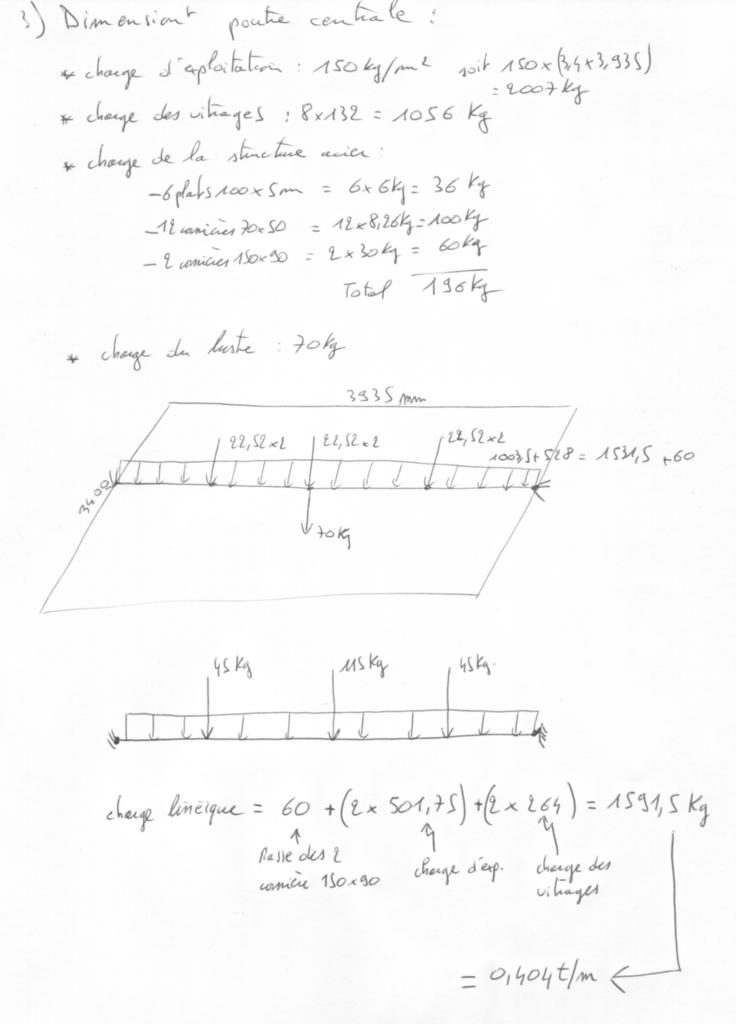 3) Dimensiont poutre centrale :
* charge d'exploitation : 150 kg/m² soit 150x(3,4x3,935)
= 2007 kg
* charge des vitrages : 8x132 = 1056 Kg
* charge de la structure acier :
- 6 plats 100x5mm = 6x6kg = 36 Kg
- 12 cornières 70x50 = 12x8,26kg = 100kg
- 2 cornières 150x90 = 2x30kg = 60kg
Total 196kg
* charge du lustre : 70kg
3935 mm
22,52x2 22,52x2 22,52x2
1003,5+528 = 1531,5 +60
3400
70kg
45kg 115kg 45kg.
charge linéique = 60 + (2x501,75) + (2x264) = 1591,5 Kg
Masse des 2
cornière 150x90
charge d'exp.
charge des
vitrages
= 0,404t/m